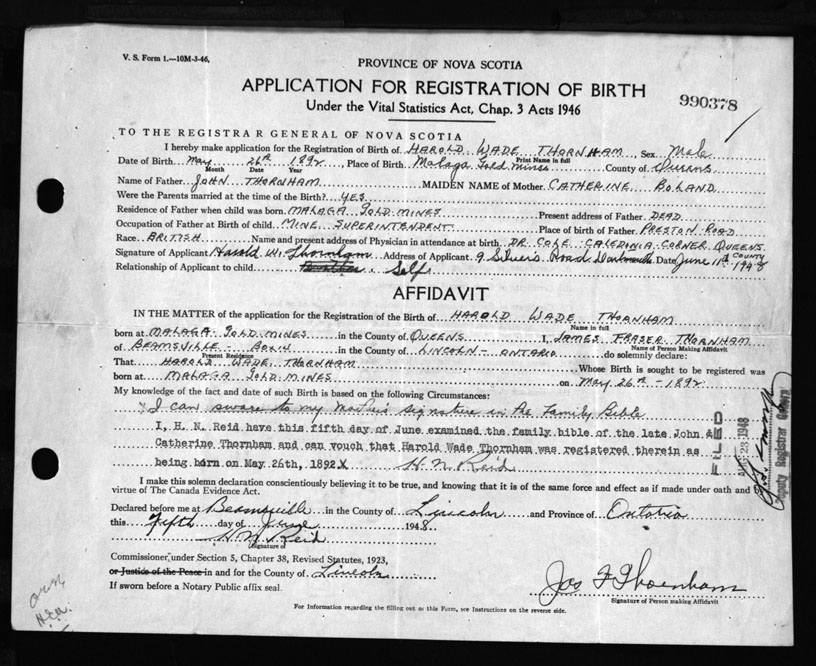 V. S. Form 1.—10M-3-46.
PROVINCE OF NOVA SCOTIA
APPLICATION FOR REGISTRATION OF BIRTH
Under the Vital Statistics Act, Chap. 3 Acts 1946
990378
TO THE REGISTRAR GENERAL OF NOVA SCOTIA
I hereby make application for the Registration of Birth of HAROLD WADE THORNHAM, Sex Male
Print Name in full
Date of Birth May 26th 1892, Place of Birth Malaga Gold Mines County of Queens
Month Date Year
Name of Father JOHN THORNHAM MAIDEN NAME of Mother CATHERINE BOLAND
Were the Parents married at the time of the Birth? YES
Residence of Father when child was born MALAGA GOLD MINES Present address of Father DEAD
Occupation of Father at Birth of child MINE SUPERINTENDENT Place of birth of Father PRESTON ROAD
Race BRITISH Name and present address of Physician in attendance at birth DR COLE CALEDONIA CORNER QUEENS COUNTY
Signature of Applicant Harold W. Thornham Address of Applicant 9 Silver's Road Dartmouth Date June 11th 1948
Relationship of Applicant to child Self
AFFIDAVIT
IN THE MATTER of the application for the Registration of the Birth of HAROLD WADE THORNHAM
Name in full
born at MALAGA GOLD MINES in the County of QUEENS I, JAMES FRASER THORNHAM
Name of Person Making Affidavit
of BEAMSVILLE - in the County of LINCOLN - ONTARIO do solemnly declare:
Present Residence
That HAROLD WADE THORNHAM Whose Birth is sought to be registered was
born at MALAGA GOLD MINES on May 26th - 1892
My knowledge of the fact and date of such Birth is based on the following Circumstances:
I can sware to my Mother's signature in the Family Bible
I, H. N. Reid have this fifth day of June examined the family bible of the late John &
Catherine Thornham and can vouch that Harold Wade Thornham was registered therein as
being born on May 26th, 1892 H. N. Reid
I make this solemn declaration conscientiously believing it to be true, and knowing that it is of the same force and effect as if made under oath and by
virtue of The Canada Evidence Act.
Declared before me at Beamsville in the County of Lincoln and Province of Ontario
this Fifth day of June 1948
H N Reid
Signature of
Commissioner, under Section 5, Chapter 38, Revised Statutes, 1923,
or Justice of the Peace in and for the County of Lincoln
If sworn before a Notary Public affix seal.
Jas F Thornham
Signature of Person making Affidavit
For Information regarding the filling out of this Form, see Instructions on the reverse side.
FILED
23 1948
Deputy Registrar General